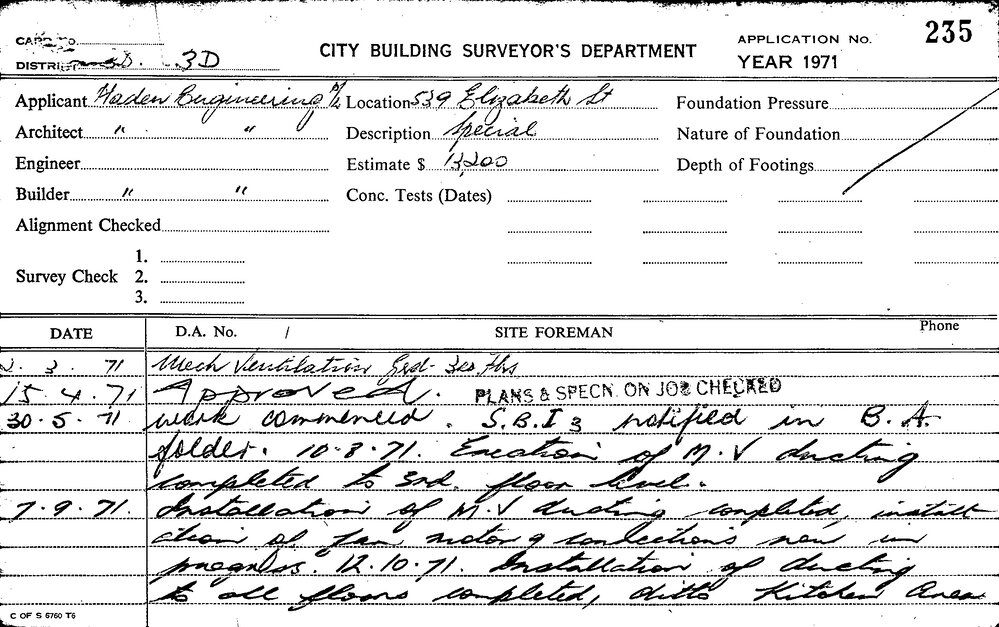 CARD No.
DISTRICT 3D. 3D
CITY BUILDING SURVEYOR'S DEPARTMENT
APPLICATION No. 235
YEAR 1971
Applicant Haden Engineering P/L Location 539 Elizabeth St Foundation Pressure
Architect " " Description Special Nature of Foundation
Engineer Estimate $ 13,200 Depth of Footings
Builder " " Conc. Tests (Dates)
Alignment Checked
1.
Survey Check 2.
3.
DATE D.A. No. / SITE FOREMAN Phone
2. 3. 71 Mech Ventilation Grd- 3rd Flrs
15.4.71 Approved. PLANS & SPECN. ON JOB CHECKED
30.5.71 work commenced. S.B.I 3 notified in B.A.
folder. 10.8.71. Erection of M.V ducting
completed to 3rd. floor level.
7.9.71. Installation of M.V ducting completed, install
ation of fan motor & connections now in
progress. 12.10.71. Installation of ducting
to all floors completed, ditto Kitchen Area
C OF S 6760 T6